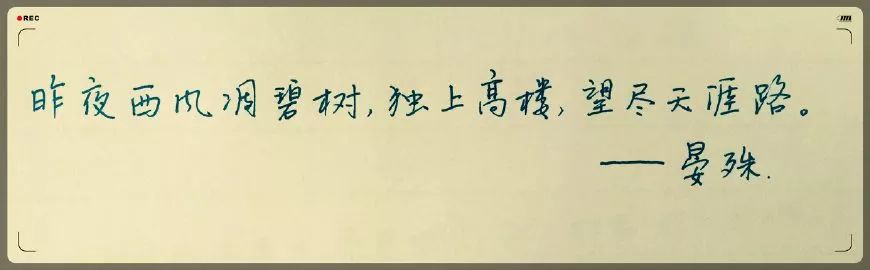 REC
昨夜西风凋碧树,独上高楼,望尽天涯路。
——晏殊.